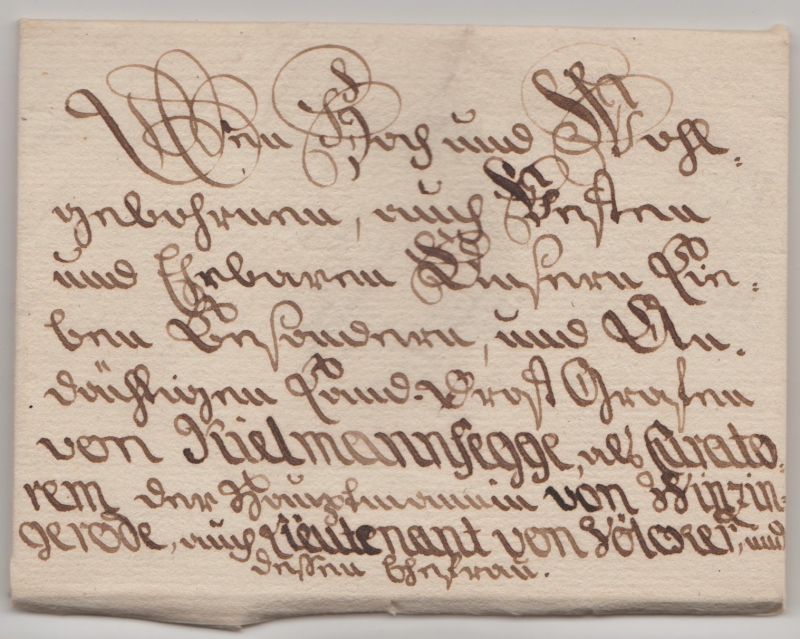 Den Hoch und Wohl-
gebohrnen, auch Vesten
und Ehrbaren Unsern Lie-
ben Besondern, und An-
dächtigen Land-Drost Grafen
von Kielmannsegge, als Curato-
rem der Hauptmannin von Winzin-
gerode, auch Lieutenant von Völcker, und
dessen Ehefrau.